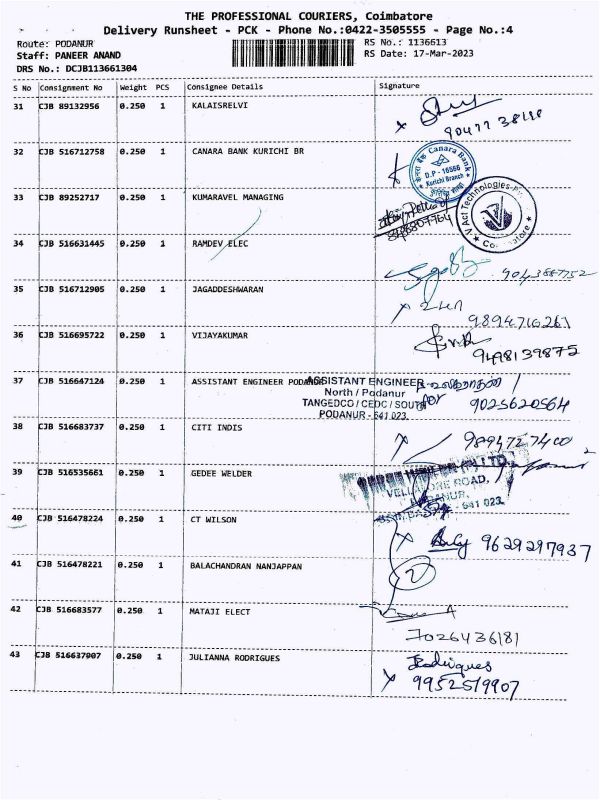 THE PROFESSIONAL COURIERS, Coimbatore
Delivery Runsheet - PCK - Phone No.:0422-3505555 - Page No.:4
Route: PODANUR
RS No.: 1136613
Staff: PANEER ANAND
RS Date: 17-Mar-2023
DRS No.: DCJB113661304
S No Consignment No Weight PCS Consignee Details Signature
31 CJB 89132956 0.250 1 KALAISRELVI
32 CJB 516712758 0.250 1 CANARA BANK KURICHI BR
Canara Bank
D.P - 16566
Kurichi Branch
33 CJB 89252717 0.250 1 KUMARAVEL MANAGING
V Act Technologies
Coimbatore
34 CJB 516631445 0.250 1 RAMDEV ELEC
35 CJB 516712905 0.250 1 JAGADDESHWARAN
9894716261
36 CJB 516695722 0.250 1 VIJAYAKUMAR
9498139875
37 CJB 516647124 0.250 1 ASSISTANT ENGINEER PODANUR
ASSISTANT ENGINEER
North / Podanur
TANGEDCO / CEDC / SOUTH
PODANUR - 641 023.
for 9025620564
38 CJB 516683737 0.250 1 CITI INDIS
39 CJB 516535661 0.250 1 GEDEE WELDER
VELLALORE ROAD,
PODANUR,
641 023
40 CJB 516478224 0.250 1 CT WILSON
9629297937
41 CJB 516478221 0.250 1 BALACHANDRAN NANJAPPAN
42 CJB 516683577 0.250 1 MATAJI ELECT
7026436181
43 CJB 516637907 0.250 1 JULIANNA RODRIGUES
Rodrigues
9952519907